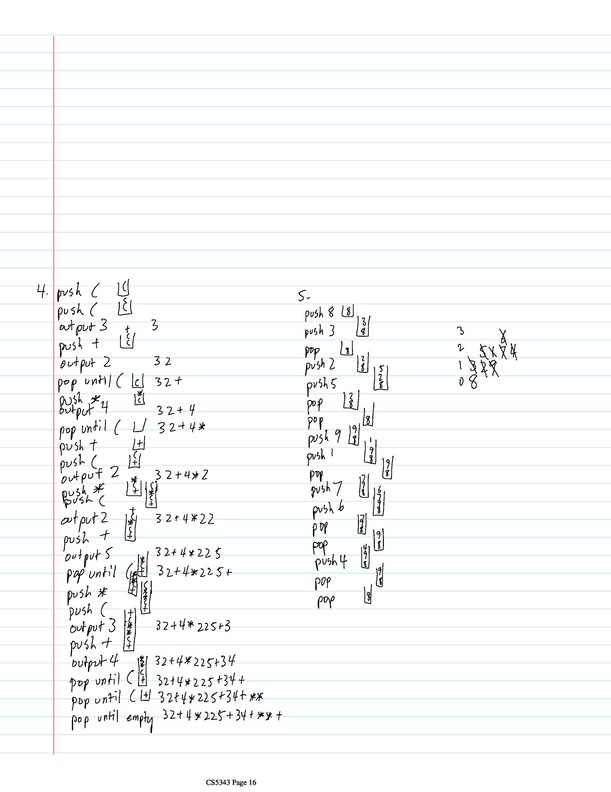 4. push (
push (
output 3 3
push +
output 2 32
pop until ( 32+
push *
output 4 32+4
pop until ( 32+4*
push +
push (
output 2 32+4*2
push *
push (
output 2 32+4*22
push +
output 5 32+4*225
pop until ( 32+4*225+
push *
push (
output 3 32+4*225+3
push +
output 4 32+4*225+34
pop until ( 32+4*225+34+
pop until ( 32+4*225+34+**
pop until empty 32+4*225+34+**+
5.
push 8 8
push 3 3 8
pop 8
push 2 2 8
push 5 5 2 8
pop 2 8
pop 8
push 9 9 8
push 1 1 9 8
pop 9 8
push 7 7 9 8
push 6 6 7 9 8
pop 7 9 8
pop 9 8
push 4 4 9 8
pop 9 8
pop 8
3
2
1
0 8
CS5343 Page 16